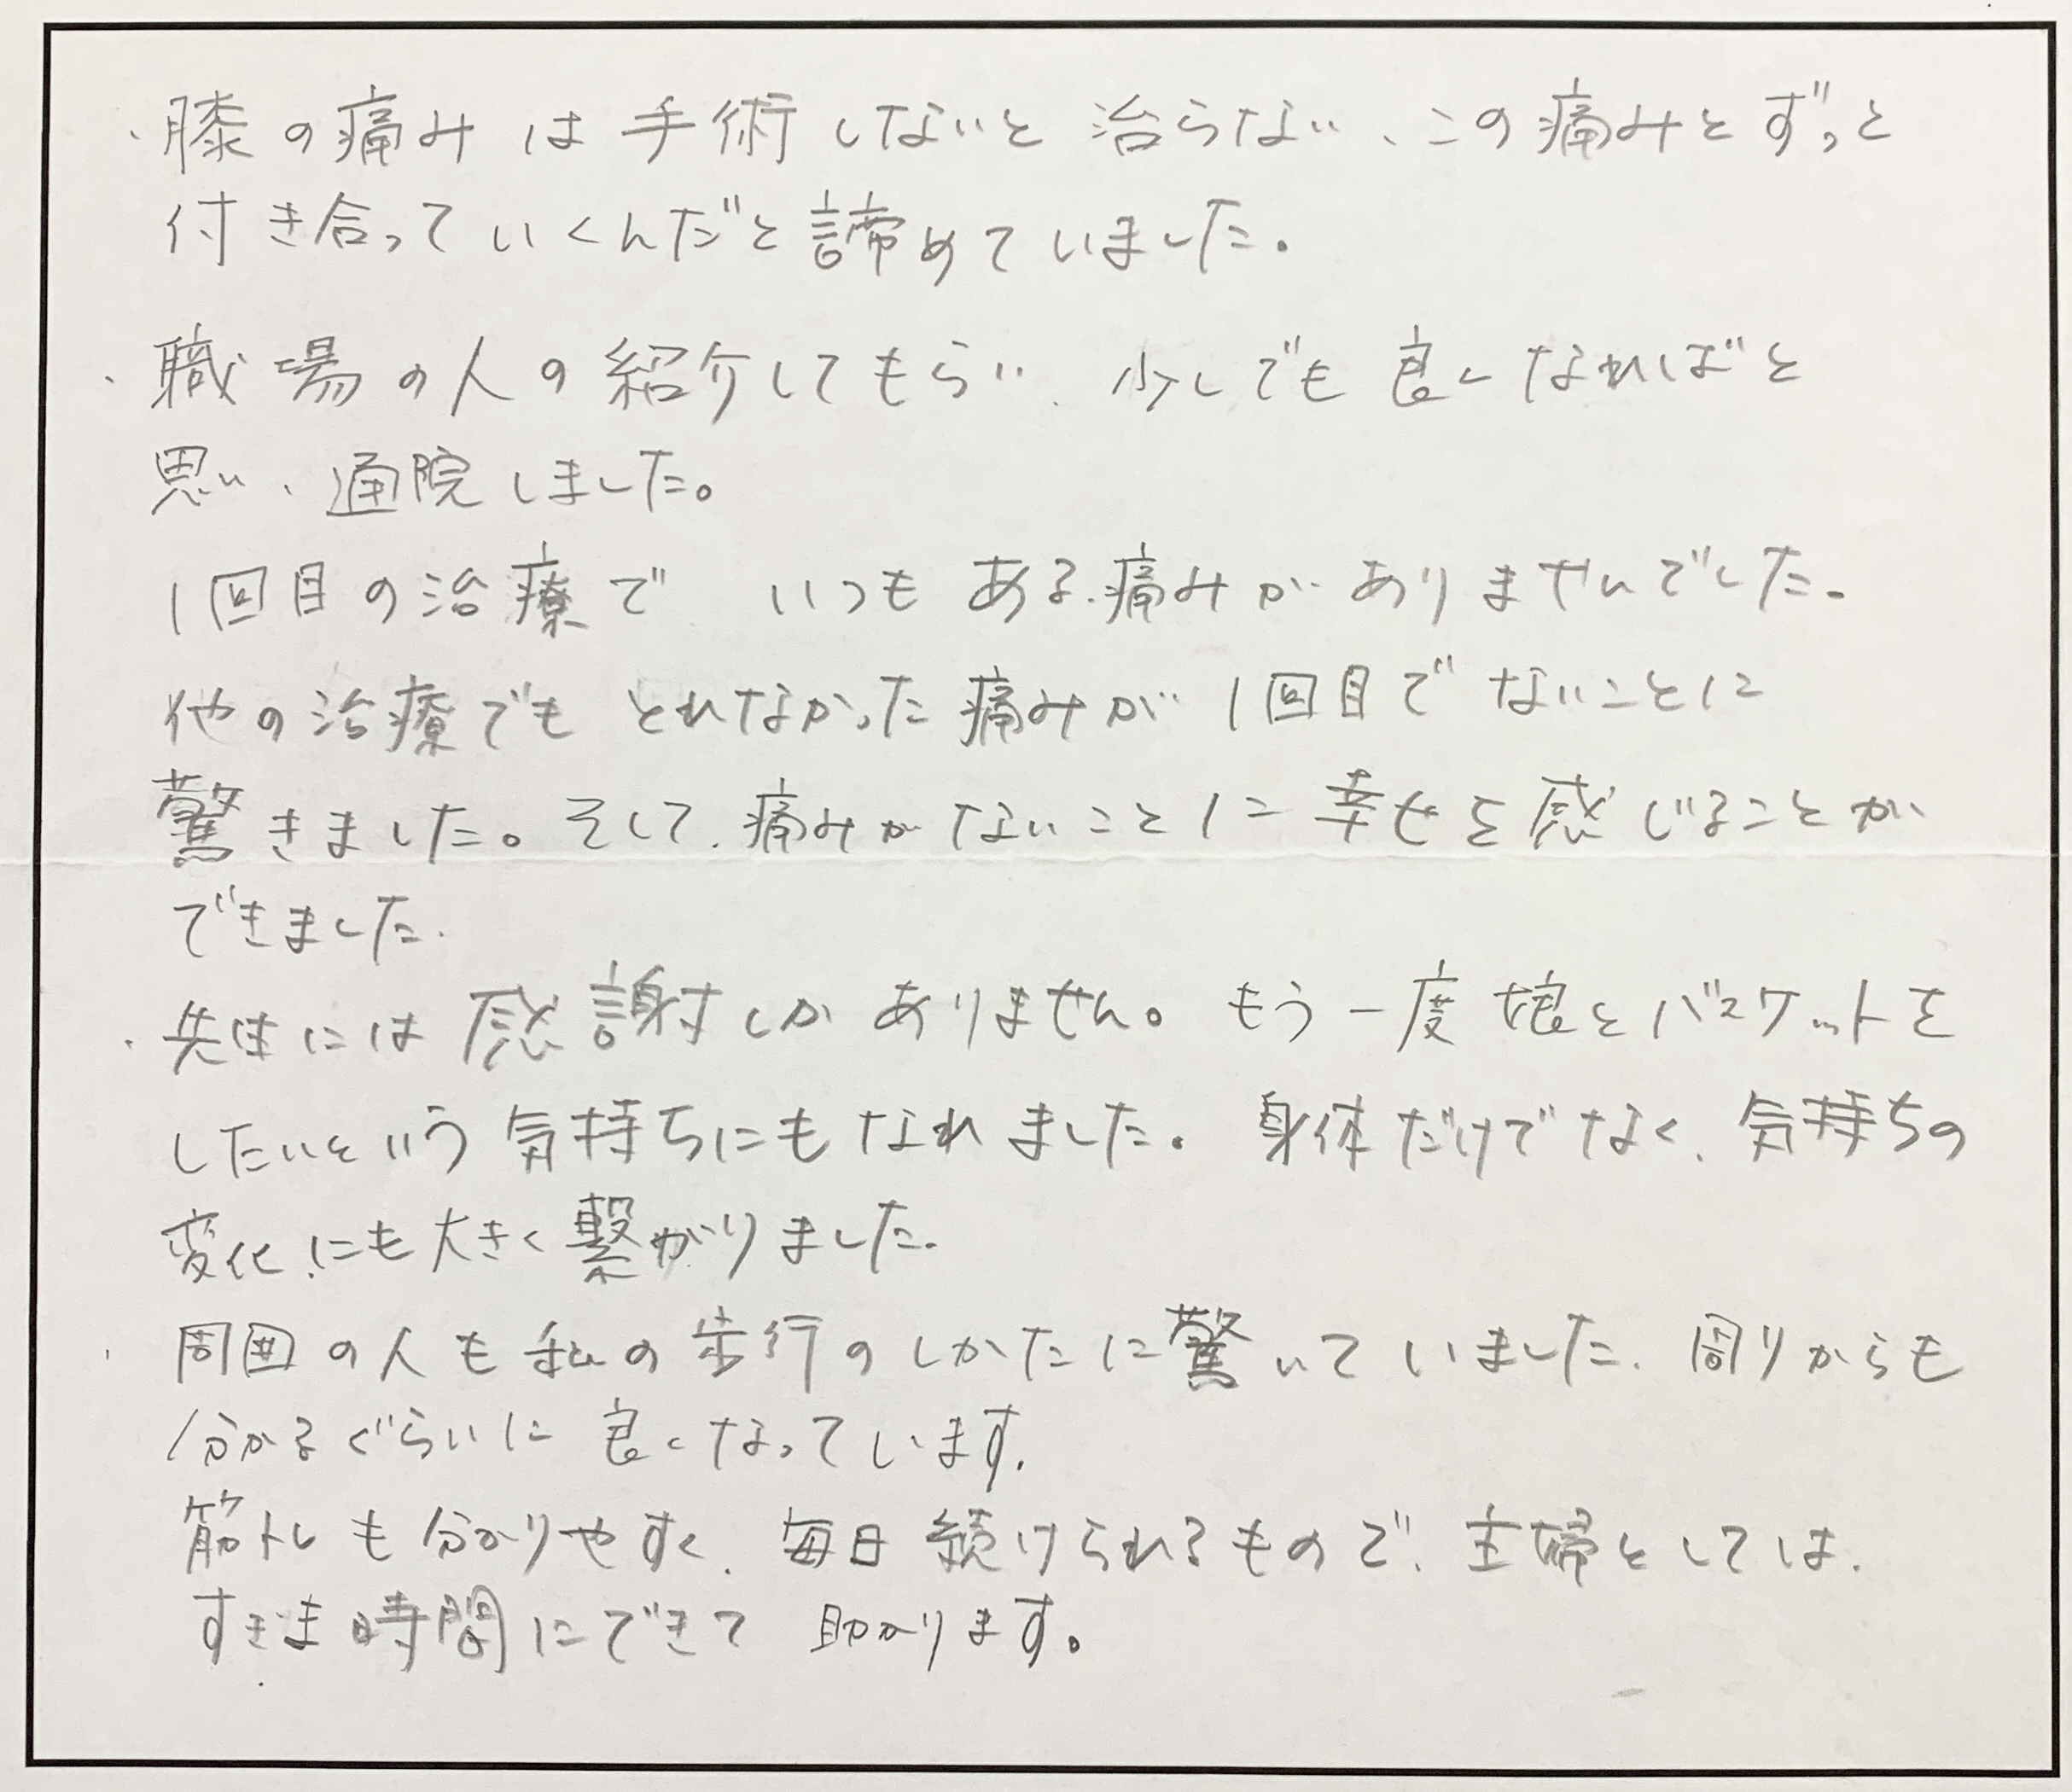 ・膝の痛みは手術しないと治らない、この痛みとずっと
付き合っていくんだと諦めていました。
・職場の人の紹介してもらい、少しでも良くなればと
思い、通院しました。
1回目の治療で いつもある痛みがありませんでした。
他の治療でもとれなかった痛みが1回目でないことに
驚きました。そして、痛みがないことに幸せを感じることが
できました。
・先生には感謝しかありません。もう一度娘とバスケットを
したいという気持ちにもなれました。身体だけでなく、気持ちの
変化にも大きく繋がりました。
・周囲の人も私の歩行のしかたに驚いていました。周りからも
分かるぐらいに良くなっています。
筋トレも分かりやすく、毎日続けられるもので、主婦としては、
すきま時間にできて 助かります。